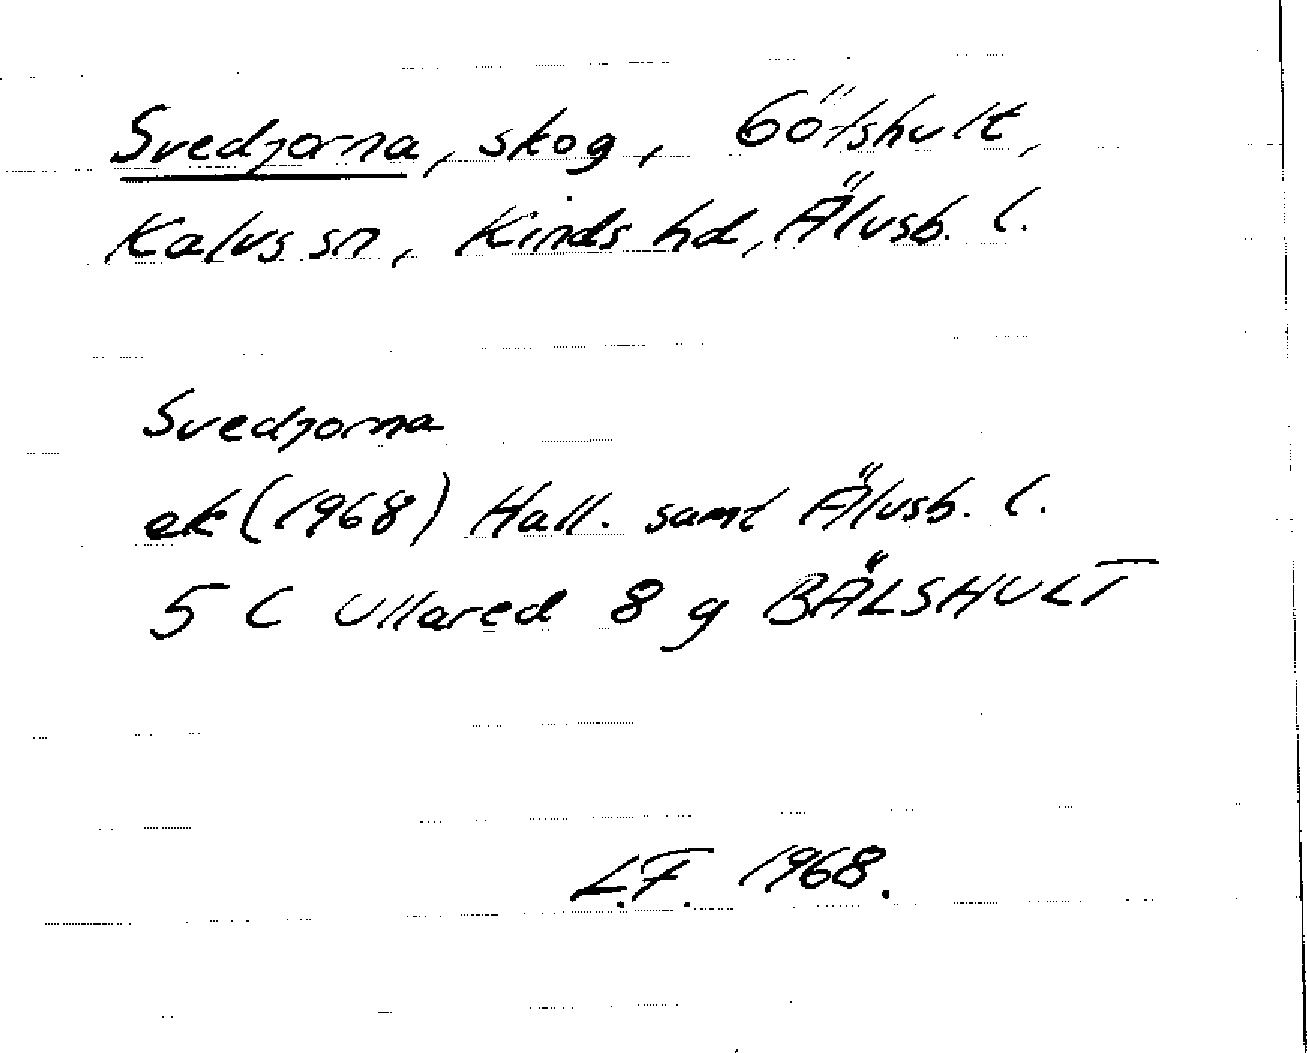 Svedjorna, skog, Götshult,
Kalvs sn, Kinds hd, Älvsb. l.
Svedjorna
ek (1968) Hall. samt Älvsb. l.
5 C Ullared 8 g BÄLSHULT
L.F. 1968.